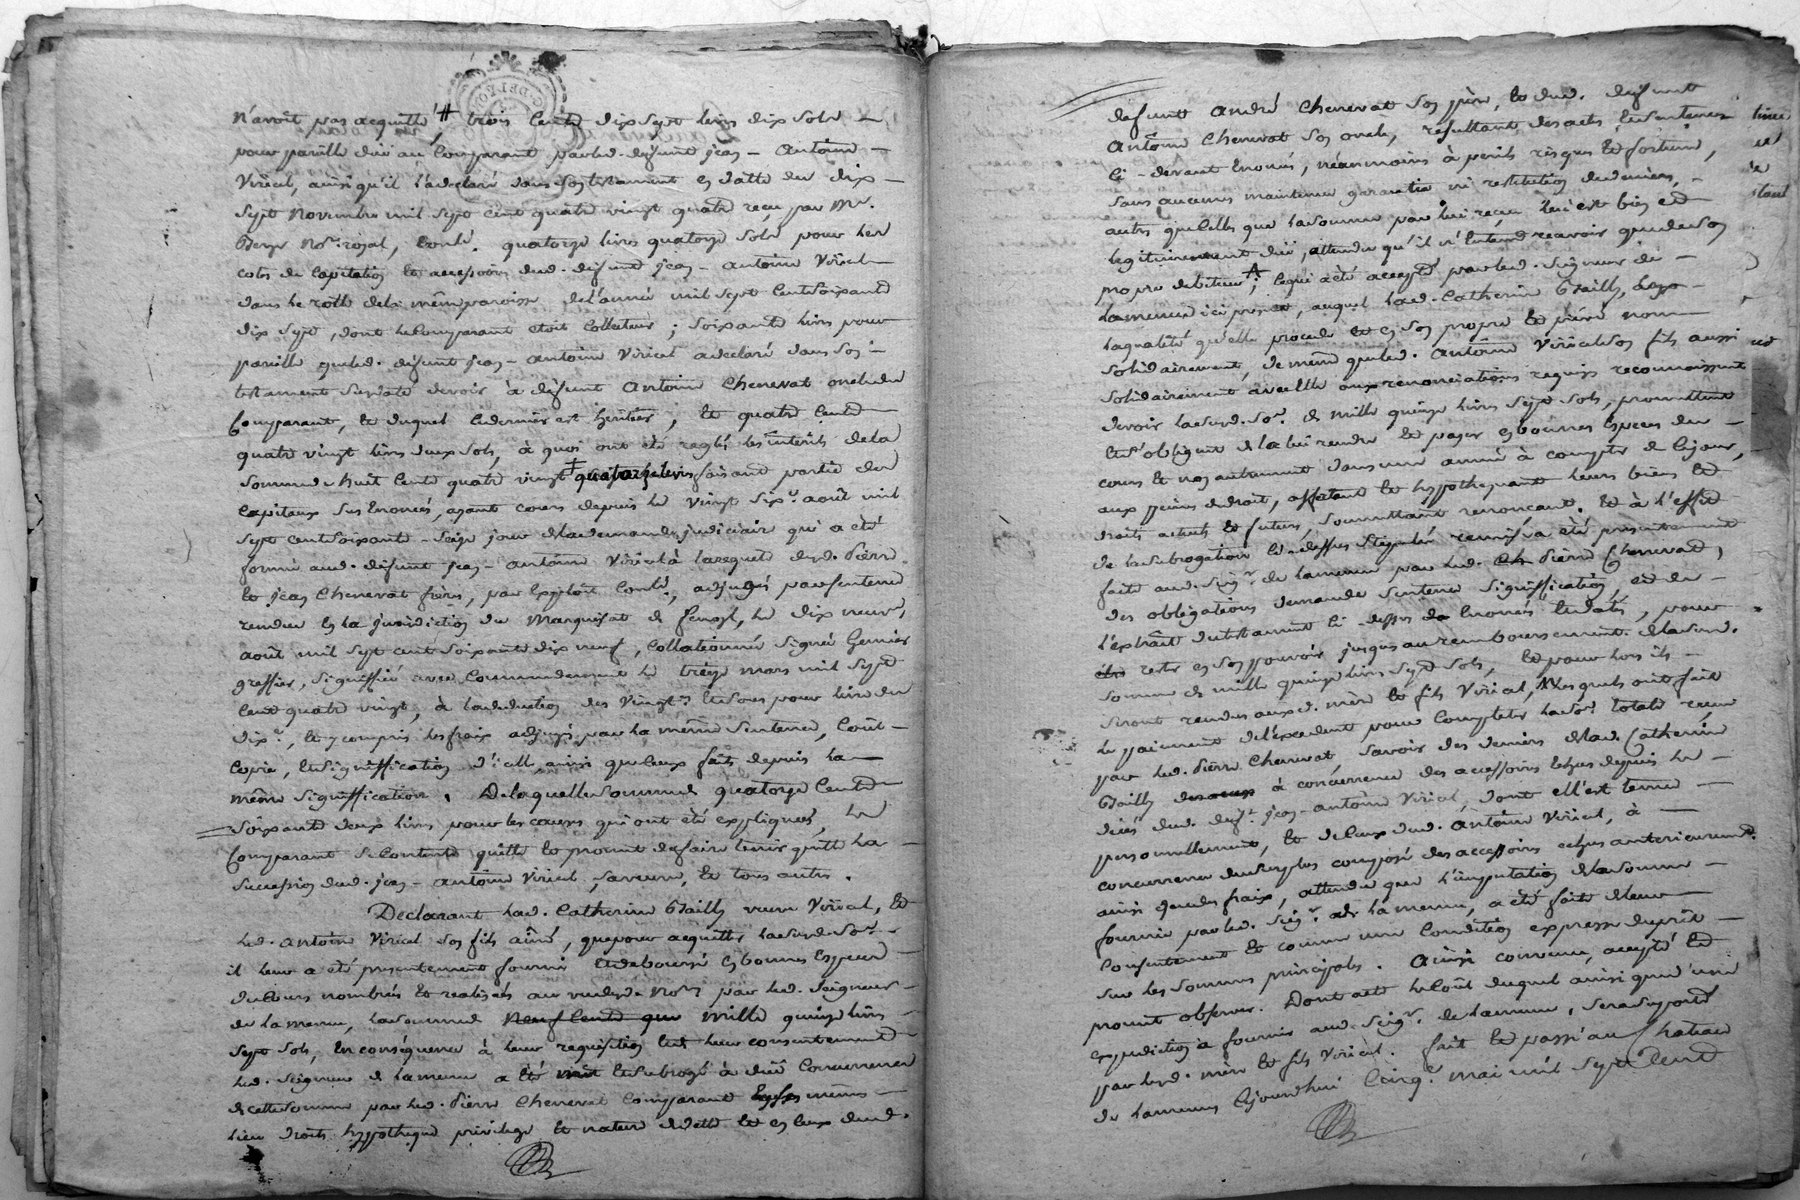 n'avoit pas acquitté # trois Cents dix sept livres dix sols
pour pareille düe au Comparant par led. deffunt jean - Antoine
Virieal, ainsi qu'il l'a declaré dans son testament en datte du dix
sept Novembre mil sept cent quatre vingt quatre reçu par Me.
No.re royal, Contlé. quatorze livres quatorze sols pour les
cotes de Capitation et accessoires dud. deffunt jean - antoine Virieal
dans le rolle de la même paroisse de l'année mil sept Cent soixante
dix sept, dont le Comparant etoit Collecteur ; soixante livres pour
pareille que led. deffunt jean - antoine Virieal a declaré dans son
testament susdaté devoir à deffunt Antoine Chenevat oncle du
Comparant, et duquel ce dernier est heritier, et quatre Cents
quatre vingt livres deux sols, à quoi ont été reglés les interêts de la
somme de huit Cents quatre vingt quatorze livres faisant partie des
Capitaux sus Enoncés, ayant cours depuis le vingt six.e août mil
sept cent soixante - seize jour de la demande judiciaire qui a été
formée aud. deffunt jean - antoine Virieal à la requete desd. Pierre
et jean Chenevat freres, par Exploit Contlé., adjugés par sentence
rendue en la jurisdiction du Marquisat de le dix neuf
août mil sept cent soixante dix neuf, Collationnée signée
greffier, signiffiée avec Commandement le treize mars mil sept
Cent quatre vingt, à la deduction des vingt.es et sous pour livre du
dix.e, et y compris les frais adjugés par la même sentence, Coût
Copie, et signiffication d'icelle, ainsi que Ceux faits depuis la
même signiffication. De laquelle somme de quatorze Cents
soixante deux livres pour les causes qui ont été expliquées, le
Comparant se Contente quitte et promet de faire tenir quitte la
succession dud. jean - antoine Virieal, sa veuve, et tous autres.
Declarant lad. Catherine veuve Virieal, et
led. antoine Virieal son fils ainé, que pour acquitter la susd. So.e
il leur a été presentement fourni et deboursé en bonnes Especes
du Cours nombrés et realisés au vu desd. No.res par led. Seigneur
de Lamenue, la somme de mille quinze livres
sept sols, En conséquence à leur requisition et de leur consentement
led. Seigneur de Lamenue a été mis et subrogé à düe Concurrence
de cette somme par led. Pierre Chenevat Comparant mêmes
lieu droits hypotheque privilege et nature de dette et en Ceux dud.
deffunt André Chenevat son père, et dud. deffunt
Antoine Chenevat son oncle, resultants des actes et sentences
Ci - devant Enoncés, néanmoins à perils risques et fortune,
sans aucune maintenue garantie ni restitution de deniers,
autres que Celles que la somme par lui reçue lui est bien et
legitimement düe, attendu qu'il n'Entend reavoir que de son
propre debiteur ; Ce qui a été accepté par led. Seigneur de
Lamenue ici present, auquel lad. Catherine
la qualité qu'elle procede et en son propre et privé nom
solidairement, de même que led. Antoine Virieal son fils aussi
solidairement avec elle aux renonciations requises reconnoissent
devoir la susd. So.e de mille quinze livres sept sols, promettent
et s'obligent de la lui rendre et payer en bonnes Especes du
cours et non autrement dans une année à compter de Ce jour,
aux peines de droit, affectant et hypothequant leurs biens et
droits actuels et futurs, soumettant renonçant. Et à l'effet
de la subrogation Ci-dessus stipulée remise a été presentement
faite aud. Seig.r de Lamenue par led. Pierre Chenevat,
des obligations demande sentence signiffication, et de
l'extrait du testament Ci - dessus Enoncés et datés, pour
rester en son pouvoir jusques au remboursement de la susd.
somme de mille quinze livres sept sols, et pour lors ils
seront rendus auxd. mère et fils Virieal, lesquels ont fait
le paiement de l'excedent pour Completer la So.e totale reçue
par led. Pierre Chenevat, savoir des deniers de lad. Catherine
à concurrence des accessoires Echus depuis le
décès dud. deft. jean - antoine Virieal, dont elle est tenue
personnellement, et de Ceux dud. antoine Virieal, à
concurrence du surplus composé des accessoires echus anterieurement
ainsi que des frais, attendu que l'imputation de la somme
fournie par led. Seig.r de Lamenue, a été faite de leur
Consentement et comme une Condition expresse du prêt
sur les sommes principales. Ainsi convenu, accepté et
promit observer. Dont acte le Coût duquel ainsi que d'une
expedition à fournir aud. Seig.r de Lamenue, sera supporté
par lesd. mère et fils Virieal. fait et passé au Chateau
de Lamenue Ce jourd'hui Cinq.e mai mil sept Cent